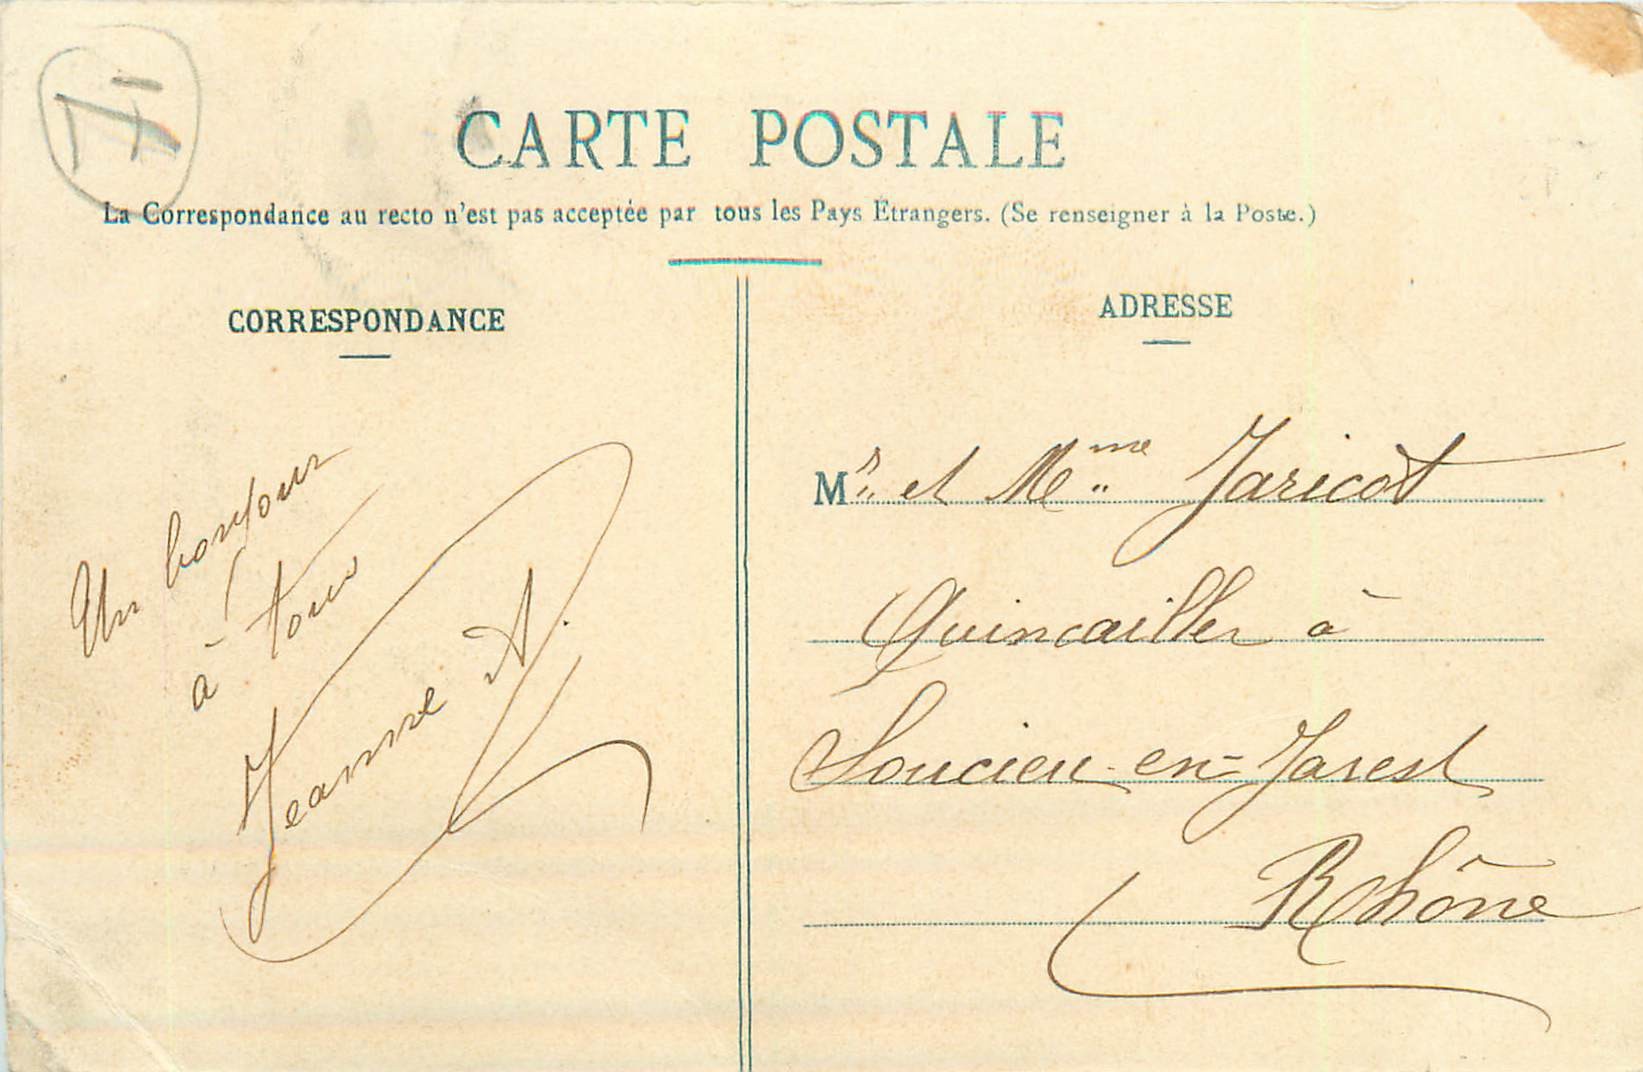 CARTE POSTALE
La Correspondance au recto n'est pas acceptée par tous les Pays Etrangers. (Se renseigner à la Poste.)
CORRESPONDANCE
Un bonjour
à tous
Jeanne A.
ADRESSE
Mr. et Mme Jaricot
Quincailler à
Soucieu-en-Jarest
Rhône